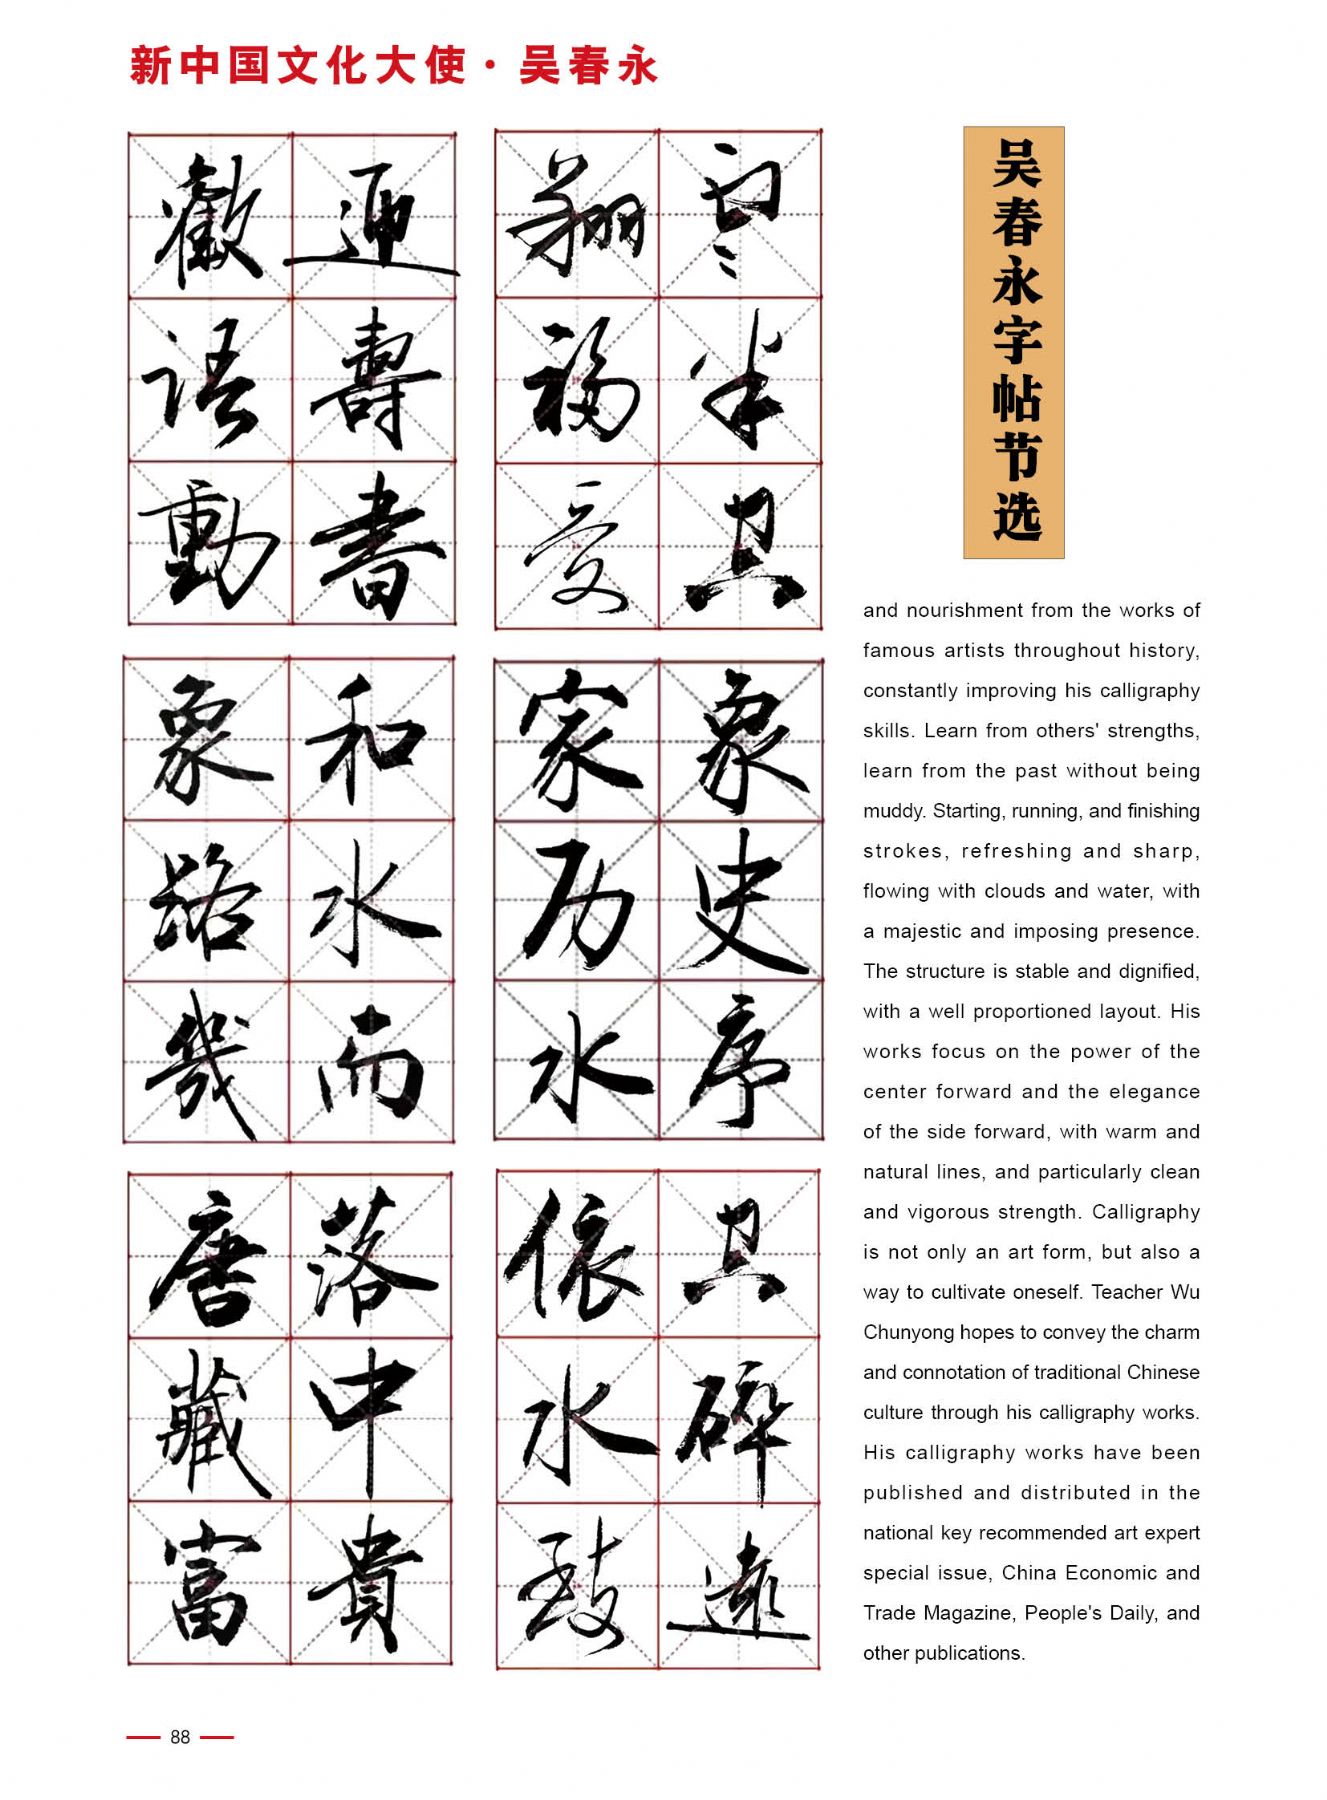 新中国文化大使·吴春永
歡迎
語壽
動書
翔
福半
象和
路水
幾而
家象
历史
水序
唐落
藏中
富貴
依
水碎
致遠
吴春永字帖节选
and nourishment from the works of
famous artists throughout history,
constantly improving his calligraphy
skills. Learn from others' strengths,
learn from the past without being
muddy. Starting, running, and finishing
strokes, refreshing and sharp,
flowing with clouds and water, with
a majestic and imposing presence.
The structure is stable and dignified,
with a well proportioned layout. His
works focus on the power of the
center forward and the elegance
of the side forward, with warm and
natural lines, and particularly clean
and vigorous strength. Calligraphy
is not only an art form, but also a
way to cultivate oneself. Teacher Wu
Chunyong hopes to convey the charm
and connotation of traditional Chinese
culture through his calligraphy works.
His calligraphy works have been
published and distributed in the
national key recommended art expert
special issue, China Economic and
Trade Magazine, People's Daily, and
other publications.
88